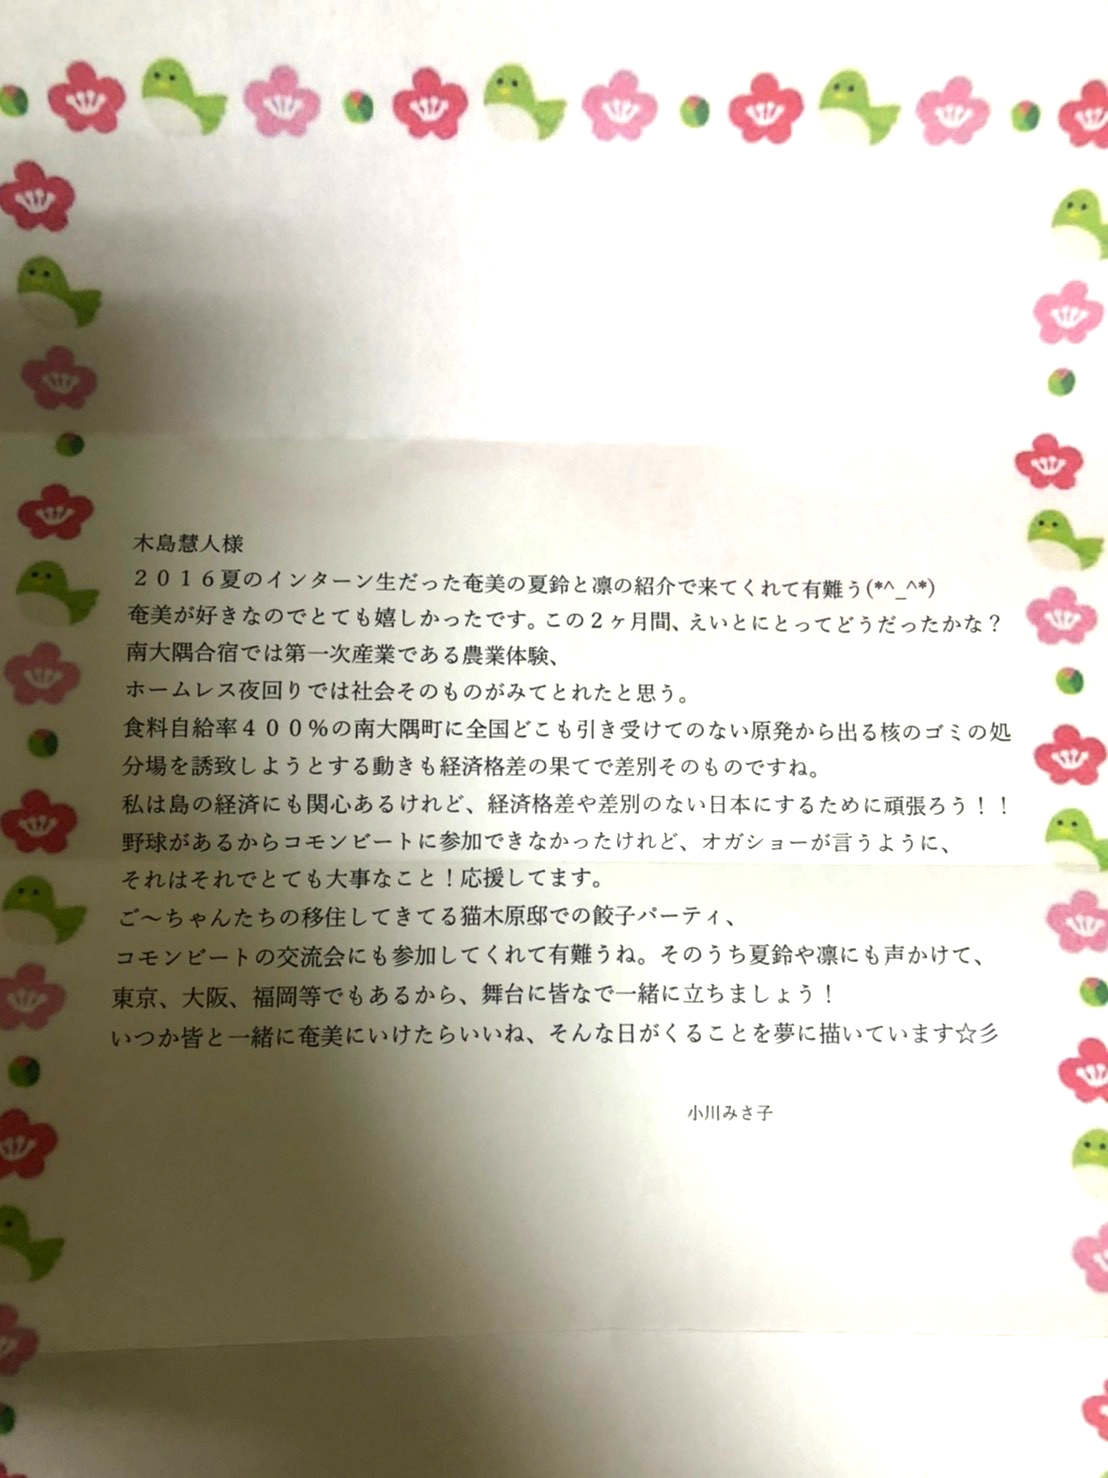 木島慧人様
２０１６夏のインターン生だった奄美の夏鈴と凛の紹介で来てくれて有難う(*^_^*)
奄美が好きなのでとても嬉しかったです。この２ヶ月間、えいとにとってどうだったかな？
南大隅合宿では第一次産業である農業体験、
ホームレス夜回りでは社会そのものがみてとれたと思う。
食料自給率４００％の南大隅町に全国どこも引き受けてのない原発から出る核のゴミの処
分場を誘致しようとする動きも経済格差の果てで差別そのものですね。
私は島の経済にも関心あるけれど、経済格差や差別のない日本にするために頑張ろう！！
野球があるからコモンビートに参加できなかったけれど、オガショーが言うように、
それはそれでとても大事なこと！応援してます。
ご～ちゃんたちの移住してきてる猫木原邸での餃子パーティ、
コモンビートの交流会にも参加してくれて有難うね。そのうち夏鈴や凛にも声かけて、
東京、大阪、福岡等でもあるから、舞台に皆なで一緒に立ちましょう！
いつか皆と一緒に奄美にいけたらいいね、そんな日がくることを夢に描いています☆彡
小川みさ子